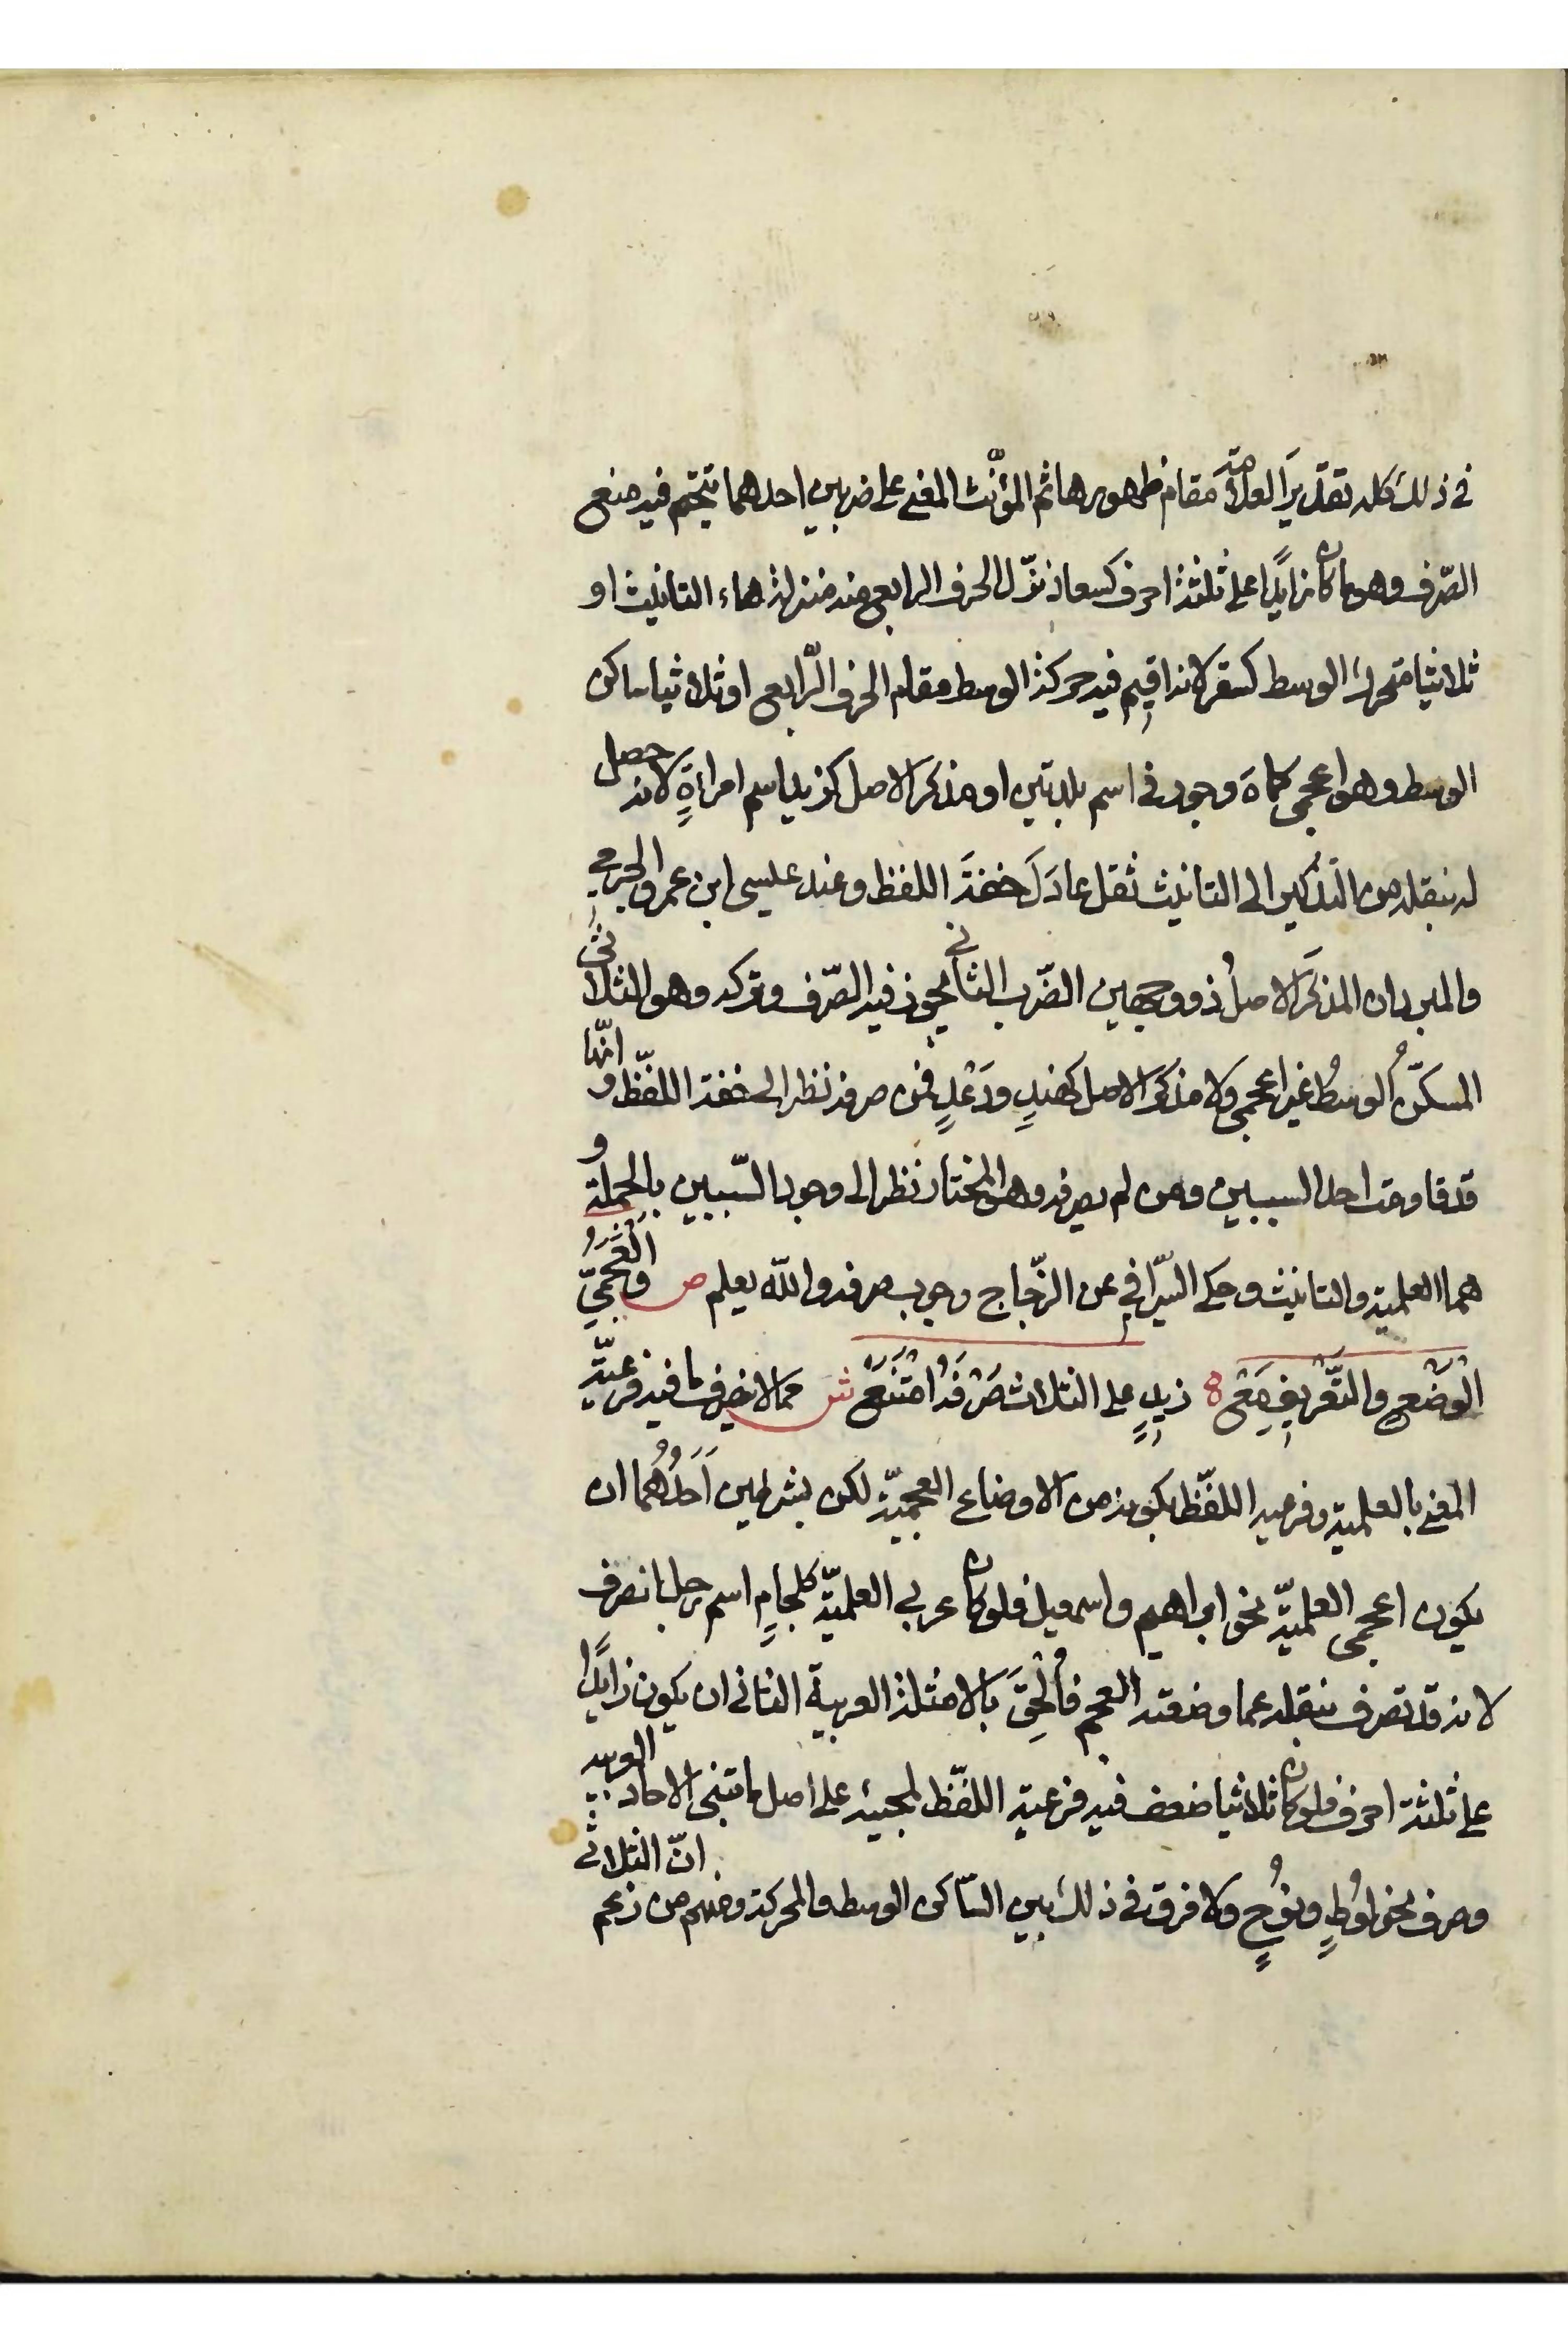 في ذلك كله تقدّيرَ العلامة مَقام ظهورها ثم المؤنّث المعنى على ضربين احدهما يتحتم فيه منع
الصّرف وهو ما كان زايدًا على ثلثة احرف كسعاد نزّل الحرف الرابع منه منزلة هاء التانيث او
ثلاثيا متحرك الوسط كسقر لانه اقِيم فيه حركة الوسط مقام الحرف الرّابع او ثلاثيا ساكن
الوسط وهو اعجمي كماهَ وجور في اسم بلدتين او مذكر الاصل كزيد اسم امراةٍ لانه حصل
له بنقله من التذكير الى التانيث ثقل عادَلَ خفةَ اللفظ وعند عيسى ابن عمر والجرمي
والمبرد ان المذكَرَ الاصلُ ذو وجهين الضّرب الثاني يجوز فيه الصّرف وتركه وهو الثلاثي
المسكّن الوسطُ غير اعجمي ولا مذكرَ الاصل كهندٍ ودَعْدٍ فمن صرفه نظر الى خفة اللفّظ وانّها
قد قاومت احد السببين ومن لم يصرفه وهو المختار نظر الى وجود السّببين بالجملة و
هما العلمية والتانيث وحكى السّيرافي عن الزّجاج وجوب صرفه والله يعلم ص والعَجَمِيّ
الوَضْعِ والتَّعْرِيفِ مَعْ زيدٍ على الثلاث صَرْفُهُ امْتَنَعْ ش مما لا ينصرف ما فيه فرعيّة
المعنى بالعلمية وفرعية اللفّظ بكونه من الاوضاع العجميّة لكن بشرطين اَحَدُهُما ان
يكون اعجمي العلميّة نحو ابراهيم واسمعيل فلو كان عربي العلميّة كلجامٍ اسم رجل انصرف
لانه قد تصرف بنقله عما وضعته العجم فأُلحِقَ بالامثلة العربية الثاني ان يكون زايدًا
على ثلثة احرف فلو كان ثلاثيا ضعف فيه فرعية اللفّظ لمجيئه على اصل ما تبنى الاحاد العربية
وصرف نحو لوُطٍ ونوُحٍ ولا فرق في ذلك بين السّاكن الوسط والمحركة ومنهم من زعم انّ الثلاثي